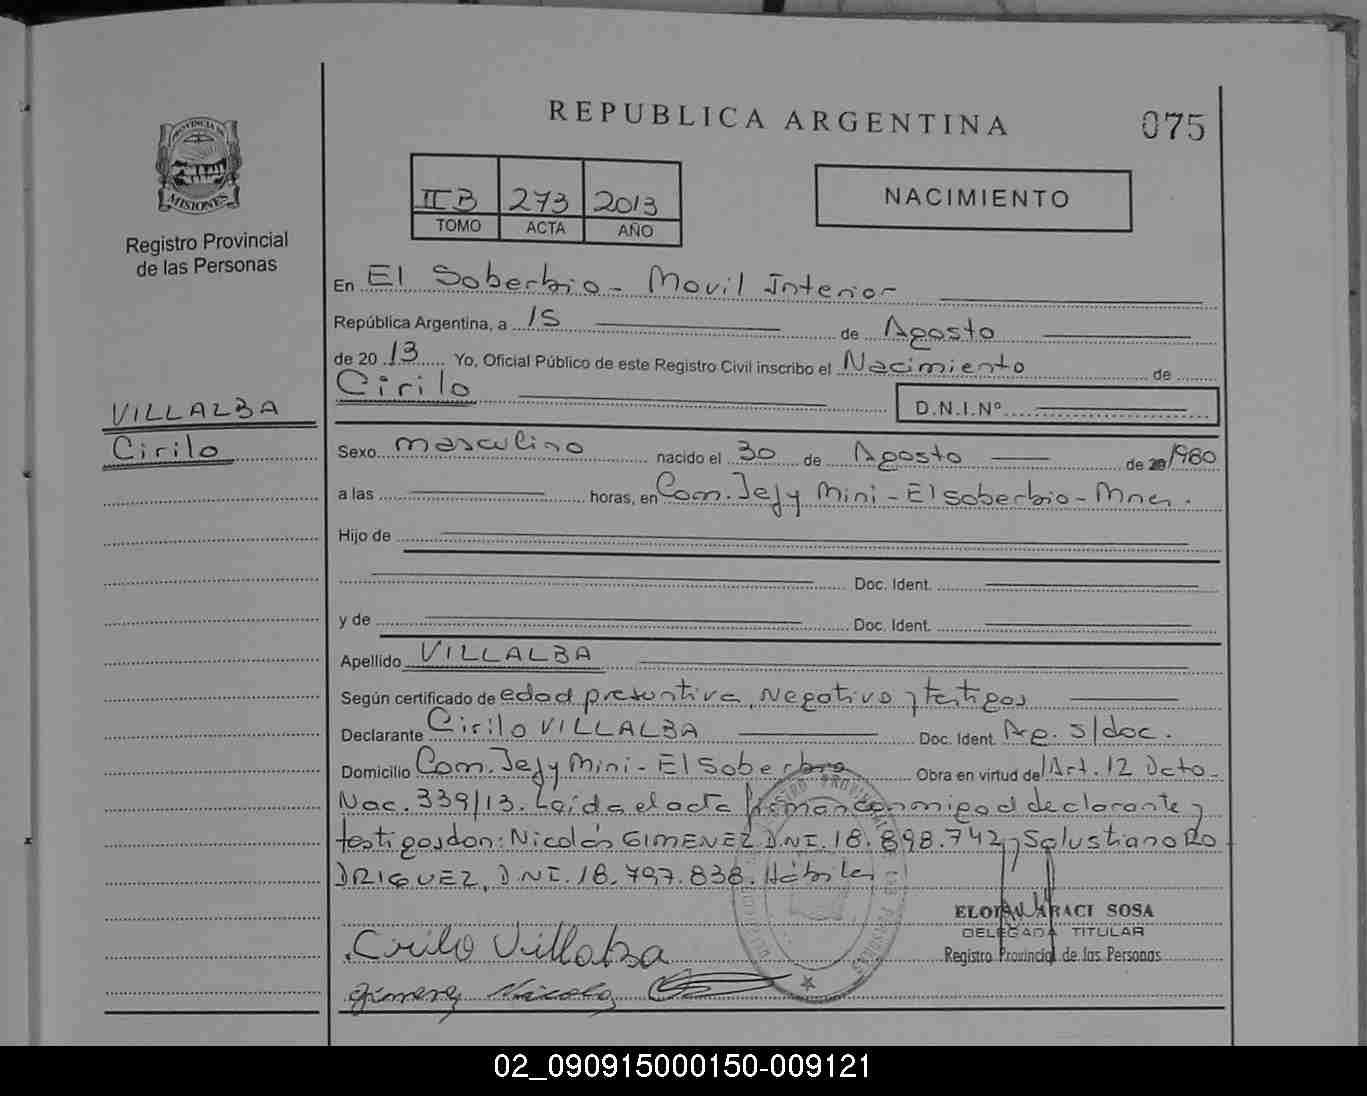 REPUBLICA ARGENTINA
075
PROVINCIA DE
MISIONES
Registro Provincial
de las Personas
II B 273 2013
TOMO ACTA AÑO
NACIMIENTO
En El Soberbio - Movil Interior
República Argentina, a 15 de Agosto
de 20 13 Yo, Oficial Público de este Registro Civil inscribo el Nacimiento de
Cirilo
D.N.I.Nº
VILLALBA
Cirilo
Sexo masculino nacido el 30 de Agosto de 1980
a las horas, en Com. Jejy Mini - El soberbio - Mnes.
Hijo de
Doc. Ident.
y de Doc. Ident.
Apellido VILLALBA
Según certificado de edad presuntiva, Negativo y testigos
Declarante Cirilo VILLALBA Doc. Ident. Arg. s/doc.
Domicilio Com. Jejy Mini - El Soberbio Obra en virtud de Art. 12 Dcto
Nac. 339/13. Leída el acta firman conmigo el declarante y
testigos don: Nicolás GIMENEZ D.N.I. 18.898.742 y Salustiano RO
DRIGUEZ, D.N.I. 18.797.838. Hábiles
ELOISA ARACI SOSA
DELEGADA TITULAR
Registro Provincial de las Personas
Cirilo Villalba
Gimenez Nicolas
02_090915000150-009121